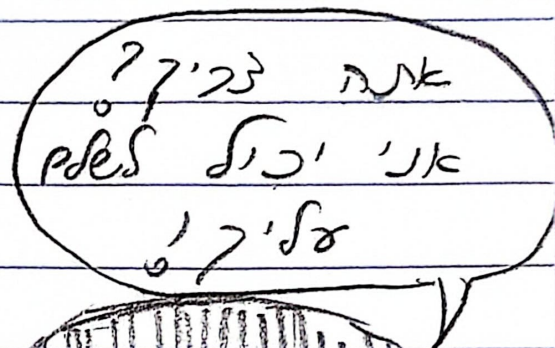 אתה צריך?
אני יכול לשלם
עליך!